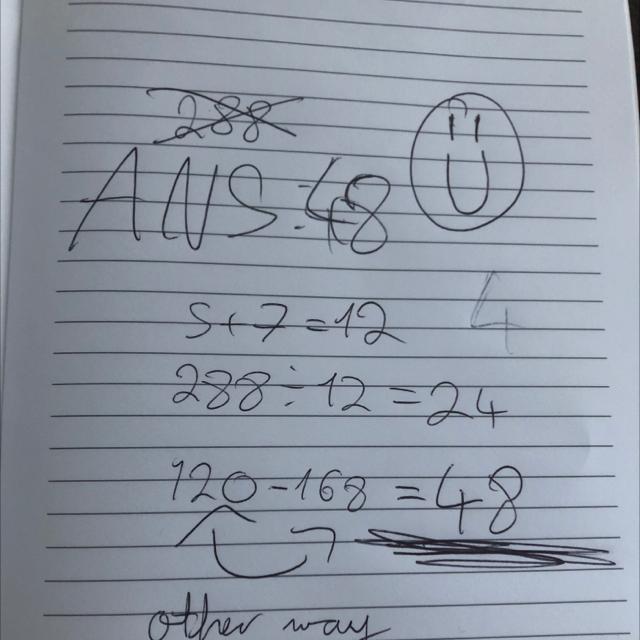 288
ANS:48
4
5+7=12
288÷12=24
120-168=48
other way